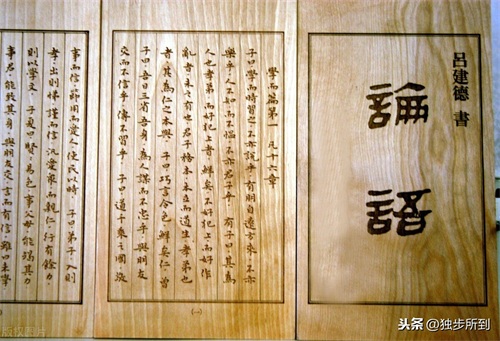 呂建德 書
論語
學而篇第一 凡十六章
子曰學而時習之不亦說乎有朋自遠方來不亦
樂乎人不知而不慍不亦君子乎 有子曰其為
人也孝弟而好犯上者鮮矣不好犯上而好作
亂者未之有也君子務本本立而道生孝弟也
者其為仁之本與 子曰巧言令色鮮矣仁 曾
子曰吾日三省吾身為人謀而不忠乎與朋友
交而不信乎傳不習乎 子曰道千乘之國敬
(一)
事而信節用而愛人使民以時 子曰弟子入則
孝出則悌謹而信汎愛眾而親仁行有餘力
則以學文 子夏曰賢賢易色事父母能竭其力
事君能致其身與朋友交言而有信雖曰未學
头条 @独步所到